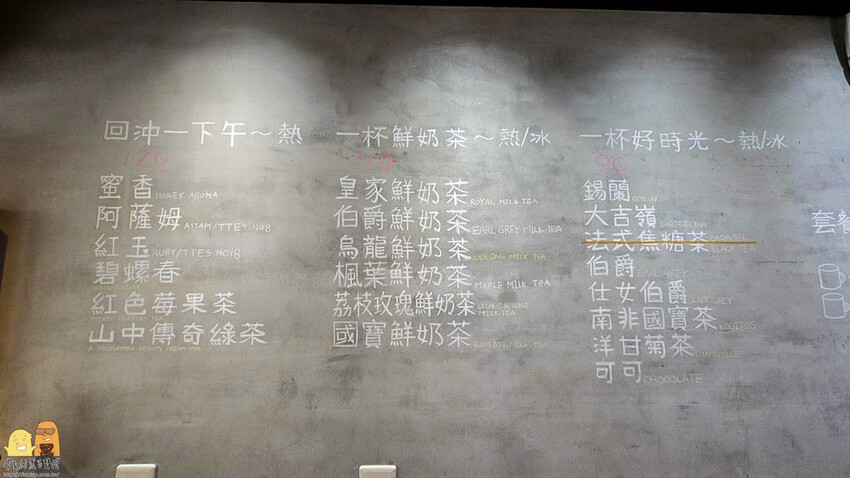 回沖一下午～熱
120
蜜香 HONEY AROMA
阿薩姆 ASSAM/TTES.NO8
紅玉 RUBY/TTES.NO18
碧螺春
紅色莓果茶
山中傳奇綠茶
一杯鮮奶茶～熱/冰
110
皇家鮮奶茶 ROYAL MILK TEA
伯爵鮮奶茶 EARL GREY MILK TEA
烏龍鮮奶茶 OOLONG MILK TEA
楓葉鮮奶茶 MAPLE MILK TEA
荔枝玫瑰鮮奶茶 LYCHEE & ROSE MILK TEA
國寶鮮奶茶 ROOIBOS MILK TEA
一杯好時光～熱/冰
90
錫蘭 CEYLON
大吉嶺 DARJEELING
法式焦糖茶 CARAMEL BLACK TEA
伯爵 EARL GREY
仕女伯爵 LADY GREY
南非國寶茶 ROOIBOS
洋甘菊茶 CHAMOMILE
可可 CHOCOLATE
套餐